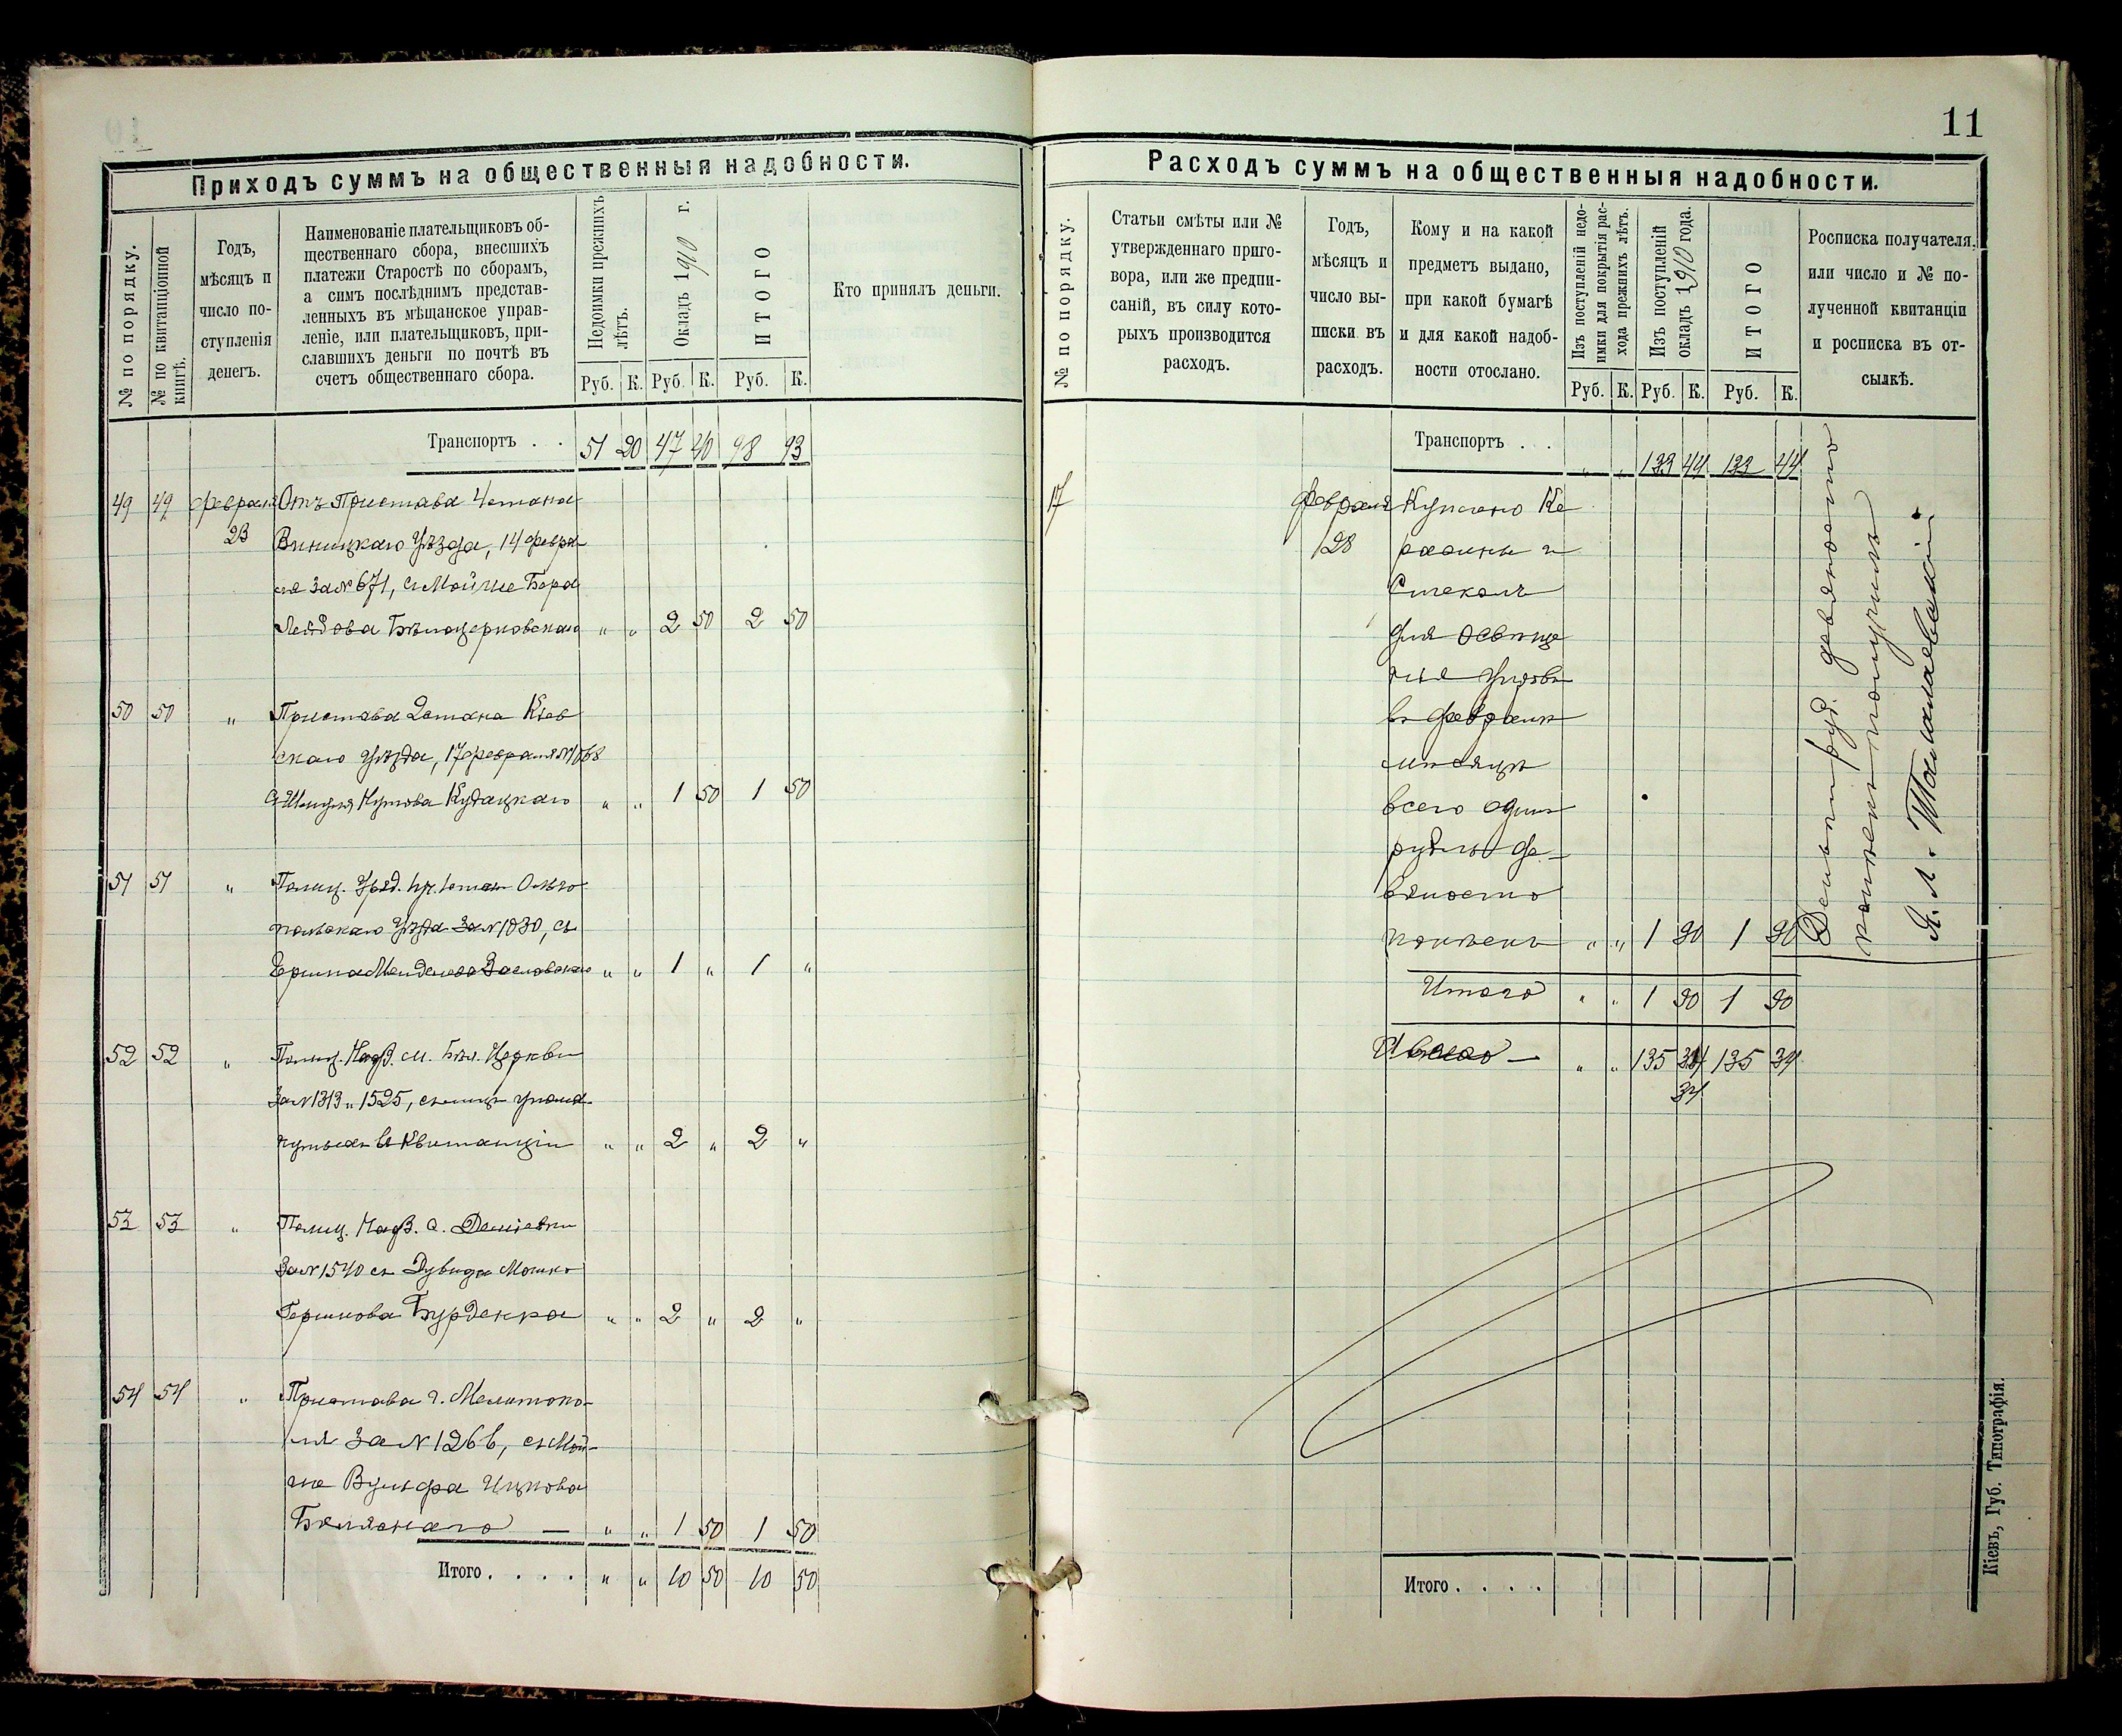 11
Приходъ суммъ на общественныя надобности.
№ по порядку.
№ по квитанціонной книгѣ.
Годъ,
мѣсяцъ и
число по-
ступленія
денегъ.
Наименованіе плательщиковъ об-
щественнаго сбора, внесшихъ
платежи Старостѣ по сборамъ,
а симъ послѣднимъ представ-
ленныхъ въ мѣщанское управ-
леніе, или плательщиковъ, при-
славшихъ деньги по почтѣ въ
счетъ общественнаго сбора.
Недоимки прежнихъ
лѣтъ.
Окладъ 1910 г.
ИТОГО
Кто принялъ деньги.
Руб. К. Руб. К. Руб. К.
Транспортъ . . 51 20 47 40 98 93
49 49 февраля Отъ Пристава 4 стана
23 Виницкаго Уѣзда, 14 февра
ля за № 671, съ Мойше Бера
Лейбова Бѣлоцерковскаго " " 2 50 2 50
50 50 " Пристава 2 стана Кіев
скаго уѣзда, 17 февраля №
Кудацкаго " " 1 50 1 50
51 51 " Полиц. Уряд. уч. стан
польскаго Уѣзда за № 1030, съ
Заславскаго " " 1 " 1 "
52 52 " Полиц. Надз. м. Бѣл. Церкви
за № 1313 и 1525, съ лицъ упомя-
нутыхъ въ квитанціи " " 2 " 2 "
53 53 " Полиц. Надз. с. Деміевки
за № 1540 съ Дувида Мошко
Гершкова Бурденка " " 2 " 2 "
54 54 " Пристава г. Мелитопо-
ля за № 1266, съ Мой-
ше Вульфа Ицкова
Белянаго — " " 1 50 1 50
Итого . . . . " " 10 50 10 50
Расходъ суммъ на общественныя надобности.
№ по порядку.
Статьи смѣты или №
утвержденнаго приго-
вора, или же предпи-
саній, въ силу кото-
рыхъ производится
расходъ.
Годъ,
мѣсяцъ и
число вы-
писки въ
расходъ.
Кому и на какой
предметъ выдано,
при какой бумагѣ
и для какой надоб-
ности отослано.
Изъ поступленій недо-
имки для покрытія рас-
хода прежнихъ лѣтъ.
Изъ поступленій
окладъ 1910 года.
ИТОГО
Росписка получателя,
или число и № по-
лученной квитанціи
и росписка въ от-
сылкѣ.
Руб. К. Руб. К. Руб. К.
Транспортъ . . " " 133 44 133 44
17 февраля Куплено Ке
28 расины и
Стекалъ
для освѣще
нія Управы
въ февралѣ
мѣсяцѣ
всего одинъ
рубль де-
вяносто
копѣекъ " " 1 90 1 90
Итого " " 1 90 1 90
А всего — " " 135 34 135 34
34
руб. девяносто
копѣекъ получилъ
Итого . . . .
Кіевъ, Губ. Типографія.